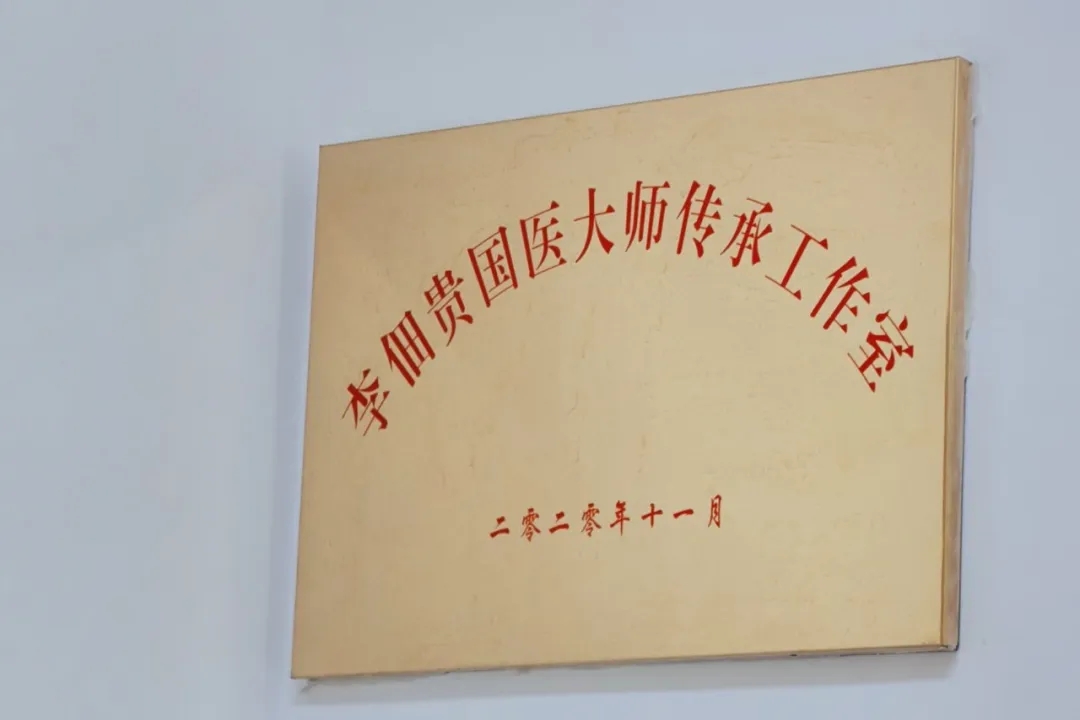 李佃贵国医大师传承工作室
二零二零年十一月